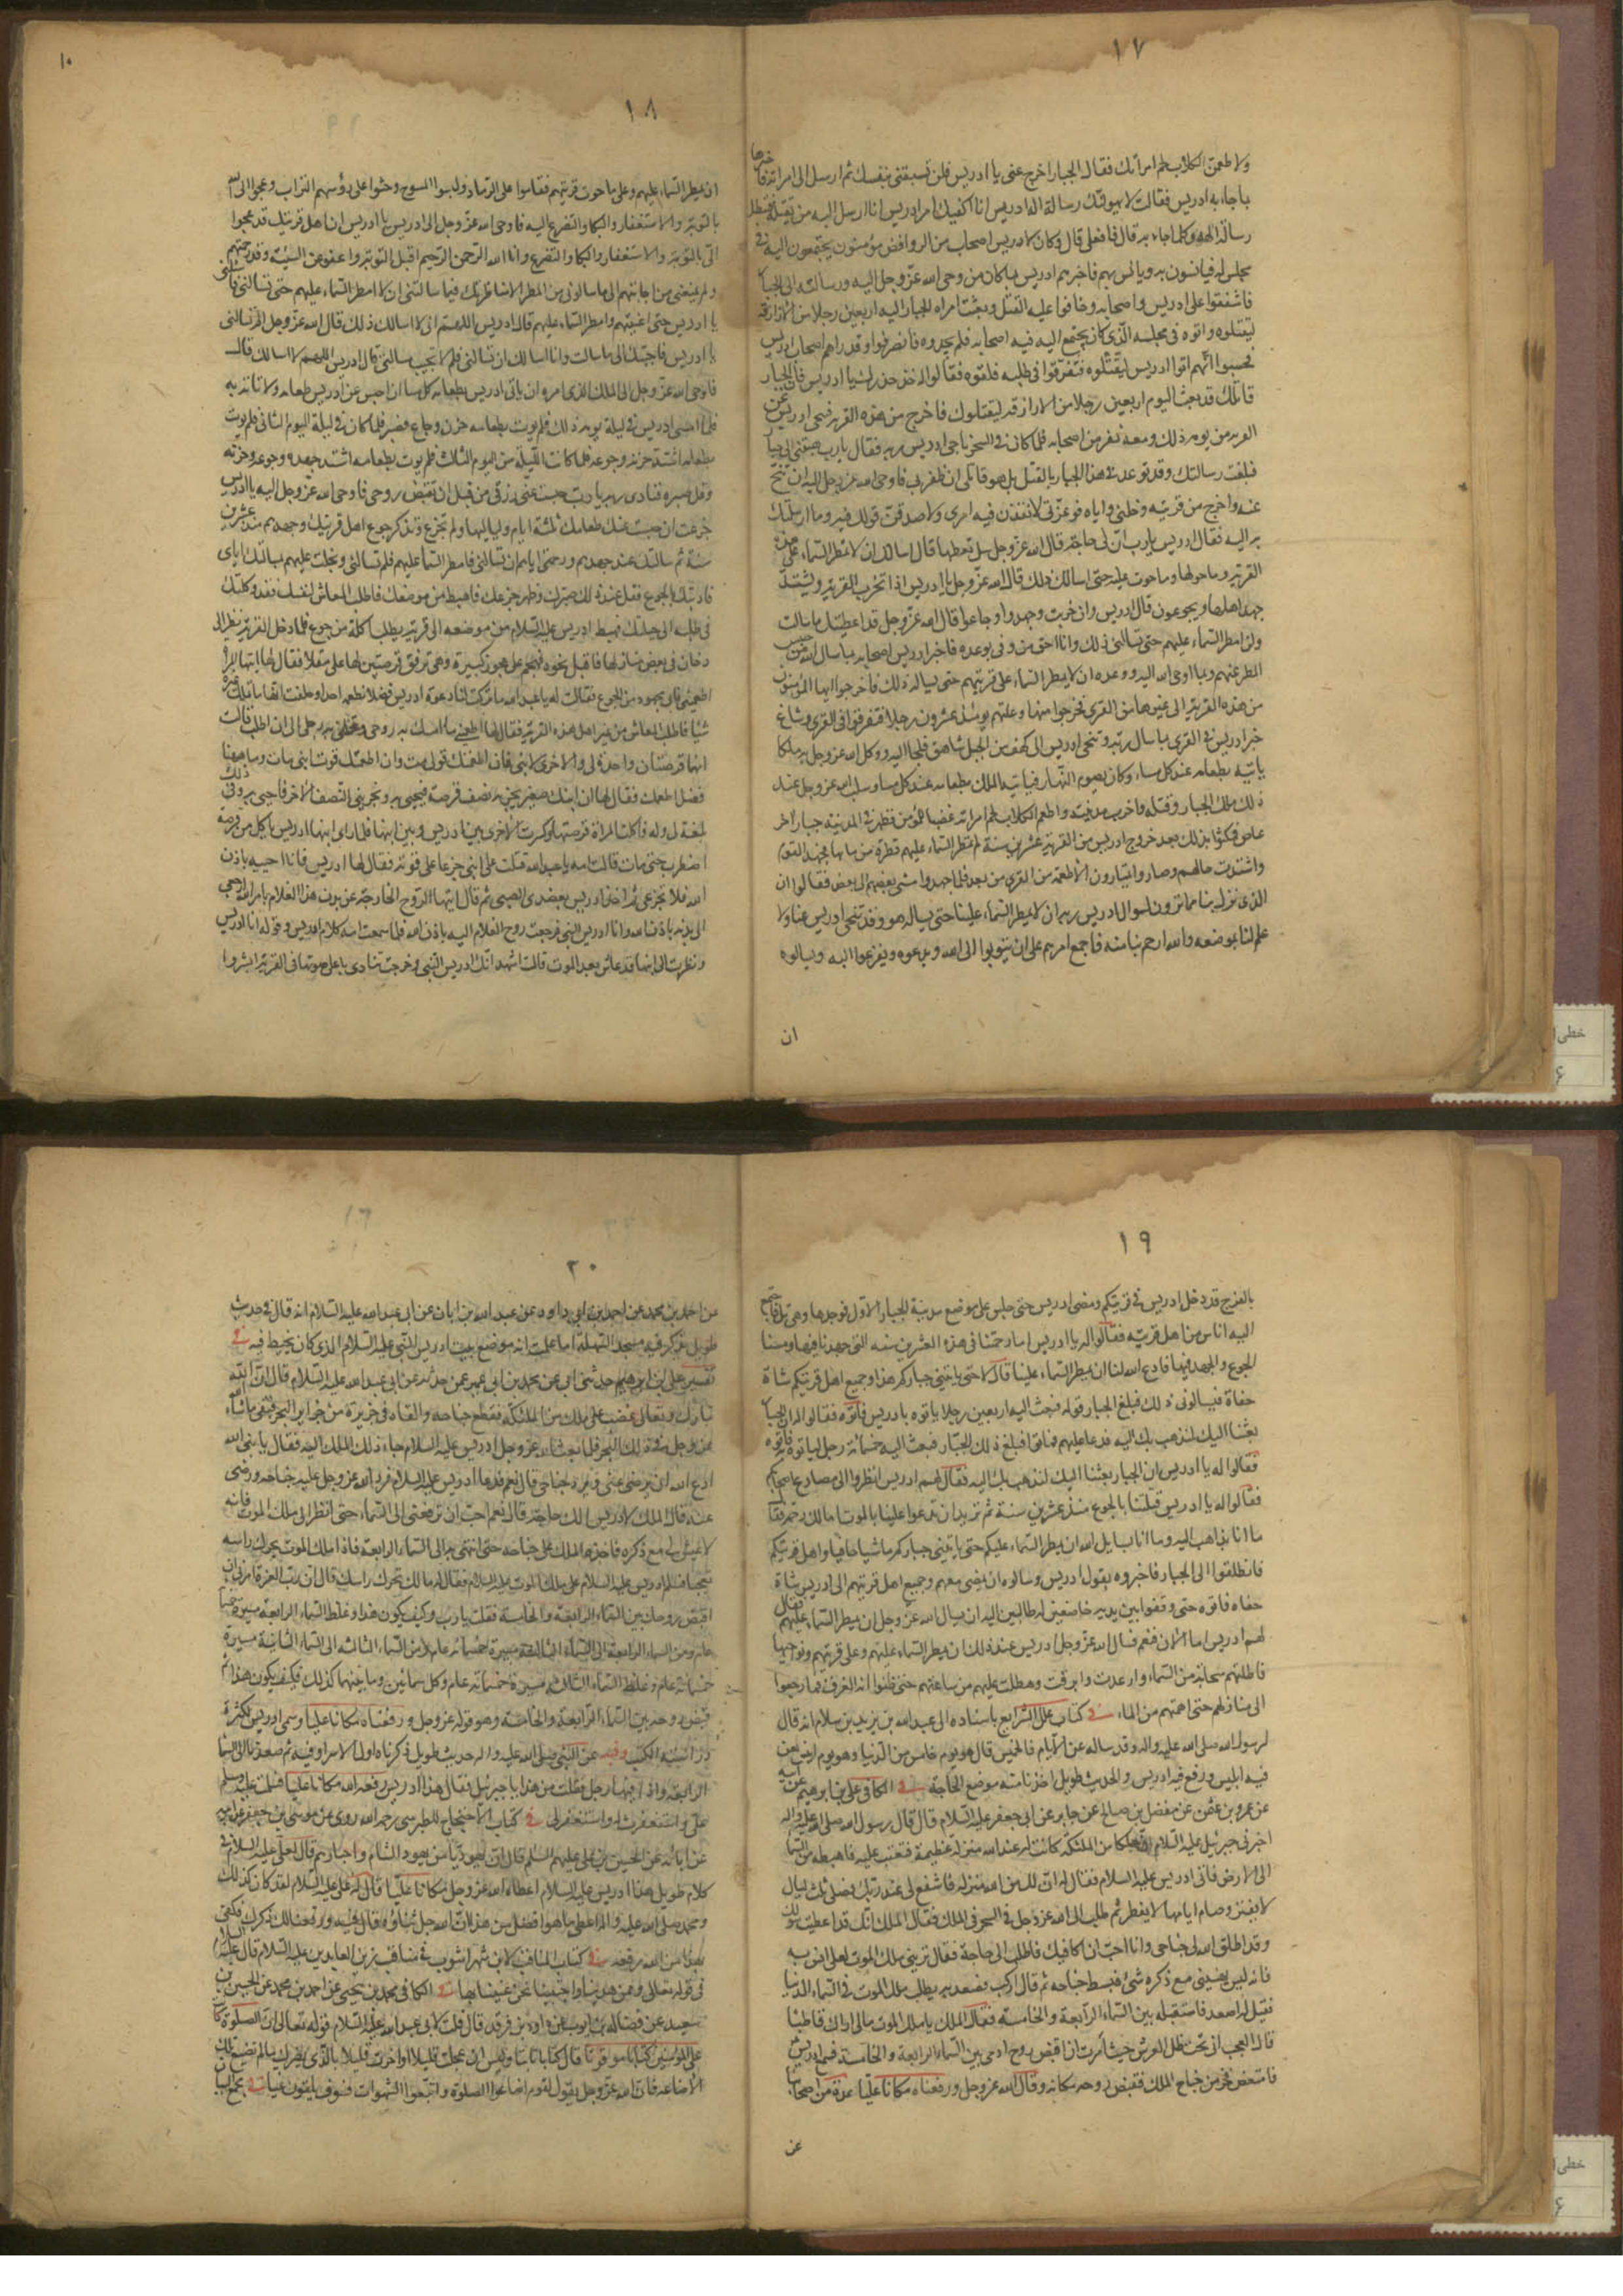 ١٧
ولاطعمن الكلاب لحم امراتك فقال الجبار اخرج عنى يا ادريس فلن تسبقنى بنفسك ثم ارسل الى امراته فاخبرها
بما جاء به ادريس فقالت لا يهولنك رسالة اله ادريس انا اكفيك امر ادريس انا ارسل اليه من يقتله فتبطل
رسالة الهه وكلما جاءك به قال فافعلى قال وكان لادريس اصحاب من الروافض مؤمنون يجتمعون اليه فى
مجلس له فيانسون به ويانس بهم فاخبرهم ادريس بما كان من وحى الله عز وجل اليه ورسالته الى الجبار
فاشفقوا على ادريس واصحابه وخافوا عليه القتل وبعثت امراه الجبار اليه اربعين رجلا من الازارقة
ليقتلوه واتوه فى مجلسه الذى كان يجتمع اليه فيه اصحابه فلم يجدوه فانصرفوا وقد راهم اصحاب ادريس
فحسبوا انهم اتوا ادريس ليقتلوه فتفرقوا فى طلبه فلقوه فقالوا له خذ حذرك يا ادريس فان الجبار
قاتلك قد بعث اليوم اربعين رجلا من الازارقة ليقتلوك فاخرج من هذه القرية فتنحى ادريس عن
القرية من يومه ذلك ومعه نفر من اصحابه فلما كان فى السحر ناجى ادريس ربه فقال يا رب بعثتنى الى جبار
فبلغت رسالتك وقد توعدنى هذا الجبار بالقتل بل هو قاتلى ان ظفر بى فاوحى الله عز وجل اليه ان تنح
عنه واخرج من قريته وخلنى واياه فوعزتى لانفذن فيه امرى ولاصدقن قولك فيه وما ارسلتك
به اليه فقال ادريس يا رب ان لى حاجة قال الله عز وجل سل تعطها قال اسالك ان لا تمطر السماء على هذه
القرية وما حولها وما حوت عليه حتى اسالك ذلك قال الله عز وجل يا ادريس اذا تخرب القرية ويشتد
جهد اهلها ويجوعون قال ادريس وان خربت وجهدوا وجاعوا قال الله عز وجل قد اعطيتك ما سالت
ولن امطر السماء عليهم حتى تسالنى ذلك وانا احق من وفى بوعده فاخبر ادريس اصحابه بما سال الله من حبس
المطر عنهم وبما اوحى الله اليه ووعده ان لا يمطر السماء على قريتهم حتى يساله ذلك فاخرجوا ايها المؤمنون
من هذه القرية الى غيرها من القرى فخرجوا منها وعدتهم يومئذ عشرون رجلا فتفرقوا فى القرى وشاع
خبر ادريس فى القرى بما سال ربه وتنحى ادريس الى كهف من الجبل شاهق فلجا اليه ووكل الله عز وجل به ملكا
ياتيه بطعامه عند كل مساء وكان يصوم النهار فياتيه الملك بطعامه عند كل مساء وسلب الله عز وجل عند
ذلك ملك الجبار وقتله واخرب مدينته واطعم الكلاب لحم امراته غضبا للمؤمن فظهر فى المدينة جبار اخر
عاص فمكثوا بذلك بعد خروج ادريس من القرية عشرين سنة لم تمطر السماء عليهم قطرة من مائها فجهد القوم
واشتدت حالهم وصاروا يمتارون الاطعمة من القرى من بعد فلما جهدوا مشى بعضهم الى بعض فقالوا ان
الذى نزل بنا مما ترون لسؤال ادريس ربه ان لا يمطر السماء علينا حتى يساله هو وقد تنحى ادريس عنا ولا
علم لنا بموضعه والله ارحم بنا منه فاجمع امرهم على ان يتوبوا الى الله ويدعوه ويفزعوا اليه ويسالوه
ان
١٠
١٨
ان يمطر السماء عليهم وعلى ما حوت قريتهم فقاموا على الرماد ولبسوا المسوح وحثوا على رؤسهم التراب وعجوا الى الله
بالتوبة والاستغفار والبكا والتضرع اليه فاوحى الله عز وجل الى ادريس يا ادريس ان اهل قريتك قد عجوا
الى بالتوبة والاستغفار والبكا والتضرع وانا الله الرحمن الرحيم اقبل التوبة واعفو عن السيئة وقد رحمتهم
ولم يمنعنى من اجابتهم الى ما سالونى من المطر الا مناظرتك فيما سالتنى ان لا امطر السماء عليهم حتى تسالنى فاسالنى
يا ادريس حتى اغيثهم وامطر السماء عليهم قال ادريس اللهم انى لا اسالك ذلك قال الله عز وجل الم تسالنى
يا ادريس فاجبتك الى ما سالت وانا اسالك ان تسالنى فلم لا تجب مسالتى قال ادريس اللهم لا اسالك قال
فاوحى الله عز وجل الى الملك الذى امره ان ياتى ادريس بطعامه كل مسا ان احبس عن ادريس طعامه ولا تاته به
فلما امسى ادريس فى ليلة يومه ذلك فلم يوت بطعامه حزن وجاع فصبر فلما كان فى ليلة اليوم الثانى فلم يوت
بطعامه اشتد حزنه وجوعه فلما كانت الليلة من اليوم الثالث فلم يوت بطعامه اشتد جهده وجوعه وحزنه
وقل صبره فنادى ربه يا رب حبست عنى رزقى من قبل ان تقبض روحى فاوحى الله عز وجل اليه يا ادريس
جزعت ان حبست عنك طعامك ثلثة ايام ولياليها ولم تجزع ولم تذكر جوع اهل قريتك وجهدهم منذ عشرين
سنة ثم سالتك عند جهدهم ورحمتى اياهم ان تسالنى فامطر السما عليهم فلم تسالنى وبخلت عليهم بمسالتك اياى
فادبتك بالجوع فقل عند ذلك صبرك وظهر جزعك فاهبط من موضعك فاطلب المعاش لنفسك فقد وكلتك
فى طلبه الى حيلتك فهبط ادريس عليه السلام من موضعه الى قرية يطلب اكلة من جوع فلما دخل القرية نظر الى
دخان فى بعض منازلها فاقبل نحوه فهجم على عجوز كبيرة وهى ترقق قرصتين لها على مقلاة فقال لها ايتها المراة
اطعمينى فانى مجهود من الجوع فقالت له يا عبد الله ما تركت لنا دعوة ادريس فضلا نطعمه احدا وحلفت انها ما تملك غيره
شيئا فاطلب المعاش من غير اهل هذه القرية فقال لها اطعمينى ما امسك به روحى وتحملنى به رجلى الى ان اطلب قالت
انها قرصتان واحدة لى والاخرى لابنى فان اطعمتك قوتى مت وان اطعمتك قوت ابنى مات وما ههنا
فضل اطعمك فقال لها ان ابنك صغير يجزيه نصف قرصة فيحيى به ويجزينى النصف الاخر فاحيى به وفى ذلك
بلغة لى وله فاكلت المراة قرصتها وكسرت الاخرى بين ادريس وبين ابنها فلما راى ابنها ادريس ياكل من قرصه
اضطرب حتى مات قالت امه يا عبد الله قتلت على ابنى جزعا على قوته فقال لها ادريس فانا احييه باذن
الله فلا تجزعى ثم اخذ ادريس بعضدى الصبى ثم قال ايتها الروح الخارجة عن بدن هذا الغلام بامر الله ارجعى
الى بدنه باذن الله وانا ادريس النبى فرجعت روح الغلام اليه باذن الله فلما سمعت امه كلام ادريس وقوله انا ادريس
ونظرت الى ابنها قد عاش بعد الموت قالت اشهد انك ادريس النبى وخرجت تنادى باعلى صوتها فى القرية ابشروا
١٩
بالفرج قد دخل ادريس فى قريتكم ومضى ادريس حتى جلس على موضع مدينة الجبار الاول فوجدها وهى تل فاجتمع
اليه اناس من اهل قريته فقالوا له يا ادريس اما رحمتنا فى هذه العشرين سنه التى جهدنا فيها ومسنا
الجوع والجهد فيها فادع الله لنا ان يمطر السماء علينا قال لا حتى ياتينى جباركم هذا وجميع اهل قريتكم مشاة
حفاة فيسالونى ذلك فبلغ الجبار قوله فبعث اليه اربعين رجلا ياتوه بادريس فاتوه فقالوا له ان الجبار
بعثنا اليك لنذهب بك اليه فدعا عليهم فماتوا فبلغ ذلك الجبار فبعث اليه خمسمائة رجل لياتوه به فاتوه
فقالوا له يا ادريس ان الجبار بعثنا اليك لنذهب بك اليه فقال لهم ادريس انظروا الى مصارع اصحابكم
فقالوا له يا ادريس قتلتنا بالجوع منذ عشرين سنة ثم تريد ان تدعوا علينا بالموت اما لك رحمة فقال
ما انا بذاهب اليه وما انا بسايل الله ان يمطر السماء عليكم حتى ياتينى جباركم ماشيا حافيا واهل قريتكم
فانطلقوا الى الجبار فاخبروه بقول ادريس وسالوه ان يمضى معهم وجميع اهل قريتهم الى ادريس مشاة
حفاه فاتوه حتى وقفوا بين يديه خاضعين له طالبين اليه ان يسال الله عز وجل ان يمطر السماء عليهم فقال
لهم ادريس اما الان فنعم فسال الله عز وجل ادريس عند ذلك ان يمطر السماء عليهم وعلى قريتهم ونواحيها
فاظلتهم سحابة من السماء وارعدت وابرقت وهطلت عليهم من ساعتهم حتى ظنوا انه الغرق فما رجعوا
الى منازلهم حتى اهمتهم من الماء فى كتاب علل الشرايع باسناده الى عبد الله بن يزيد بن سلام انه قال
لرسول الله صلى الله عليه واله وقد ساله عن الايام فالخميس قال هو يوم خامس من الدنيا وهو يوم انيس لعن
فيه ابليس ورفع فيه ادريس والحديث طويل اخذنا منه موضع الحاجة فى الكافى على بن ابرهيم عن ابيه
عن عمرو بن عثمن عن مفضل بن صالح عن جابر عن ابى جعفر عليه السلام قال قال رسول الله صلى الله عليه واله
اخبرنى جبرئيل عليه السلام ان ملكا من الملئكة كانت له عند الله منزلة عظيمة فتعتب عليه فاهبطه من السما
الى الارض فاتى ادريس عليه السلام فقال له ان لك من الله منزلة فاشفع لى عند ربك فصلى ثلث ليال
لا يفتر وصام ايامها لا يفطر ثم طلب الى الله عز وجل فى السحر فى الملك فقال الملك انك قد اعطيت سولك
وقد اطلق الله لى جناحى وانا احب ان اكافيك فاطلب الى حاجة فقال ترينى ملك الموت لعلى انس به
فانه ليس يهنينى مع ذكره شئ فبسط جناحه ثم قال اركب فصعد به يطلب ملك الموت فى السماء الدنيا
فقيل له اصعد فاستقبله بين السماء الرابعة والخامسة فقال الملك يا ملك الموت مالى اراك قاطبا
قال العجب انى تحت ظل العرش حيث امرت ان اقبض روح ادمى بين السماء الرابعة والخامسة فسمع ادريس
فامتعض فخر من جناح الملك فقبض روحه مكانه وقال الله عز وجل ورفعناه مكانا عليا عدة من اصحابنا
عن
٢٠
عن احمد بن محمد عن احمد بن ابى داود عن عبد الله بن ابان عن ابى عبد الله عليه السلام انه قال فى حديث
طويل يذكر فيه مسجد السهلة اما علمت انه موضع بيت ادريس النبى عليه السلام الذى كان يخيط فيه فى
تفسير على بن ابرهيم حدثنى ابى عن محمد بن ابى عمير عمن حدثه عن ابى عبد الله عليه السلام قال ان الله
تبارك وتعالى غضب على ملك من الملئكة فقطع جناحه والقاه فى جزيرة من جزاير البحر فبقى ما شاء الله
عز وجل فى ذلك البحر فلما بعث الله عز وجل ادريس عليه السلام جاء ذلك الملك اليه فقال يا نبى الله
ادع الله ان يرضى عنى ويرد جناحى قال نعم فدعا ادريس عليه السلام فرد الله عز وجل عليه جناحه ورضى
عنه قال الملك لادريس الك حاجة قال نعم احب ان ترفعنى الى السماء حتى انظر الى ملك الموت فانه
لا عيش لى مع ذكره فاخذه الملك على جناحه حتى انتهى به الى السماء الرابعة فاذا ملك الموت يحرك راسه
تعجبا فسلم ادريس عليه السلام على ملك الموت عليه السلام فقال له مالك تحرك راسك قال ان رب العزة امرنى ان
اقبض روحك بين السماء الرابعة والخامسة فقلت يا رب وكيف يكون هذا وغلظ السماء الرابعة مسيرة خمسمائة
عام ومن السماء الرابعة الى السماء الثالثة مسيرة خمسمائة عام ومن السماء الثالثه الى السماء الثانية مسيرة
خمسمائة عام وغلظ السماء الثالثة مسيرة خمسمائة عام وكل سمائين وما بينهما كذلك فكيف يكون هذا ثم
قبض روحه بين السماء الرابعة والخامسة وهو قوله عز وجل ورفعناه مكانا عليا وسمى ادريس لكثرة
دراسته الكتب وفيه عن النبى صلى الله عليه واله حديث طويل ذكرناه اول الاسرا وفيه ثم صعدنا الى السما
الرابعة واذا فيها رجل فقلت من هذا يا جبرئيل فقال هذا ادريس رفعه الله مكانا عليا فسلمت عليه وسلم
على واستغفرت له واستغفر لى فى كتاب الاحتجاج للطبرسى رحمه الله روى عن موسى بن جعفر عن ابيه
عن ابائه عن الحسين بن على عليهم السلم قال ان يهوديا من يهود الشام واحبارهم قال لعلى عليه السلام فى
كلام طويل هذا ادريس عليه السلام اعطاه الله عز وجل مكانا عليا قال له على عليه السلام لقد كان كذلك
ومحمد صلى الله عليه واله اعطى ما هو افضل من هذا ان الله جل ثناؤه قال فيه ورفعنا لك ذكرك فكفى
بهذا من الله رفعة فى كتاب المناقب لابن شهراشوب فى مناقب زين العابدين عليه السلام قال عليه السلام
فى قوله تعالى وممن هدينا واجتبينا نحن عنينا بها فى الكافى محمد بن يحيى عن احمد بن محمد عن الحسين بن
سعيد عن فضاله بن ايوب عن داود بن فرقد قال قلت لابى عبد الله عليه السلام قوله تعالى ان الصلوة كانت
على المؤمنين كتابا موقوتا قال كتابا ثابتا وليس ان عجلت قليلا او اخرت قليلا بالذى يضرك ما لم تضيع تلك
الاضاعه فان الله عز وجل يقول لقوم اضاعوا الصلوة واتبعوا الشهوات فسوف يلقون غيا فى مجمع البيان
خطى
۶
خطى
۶